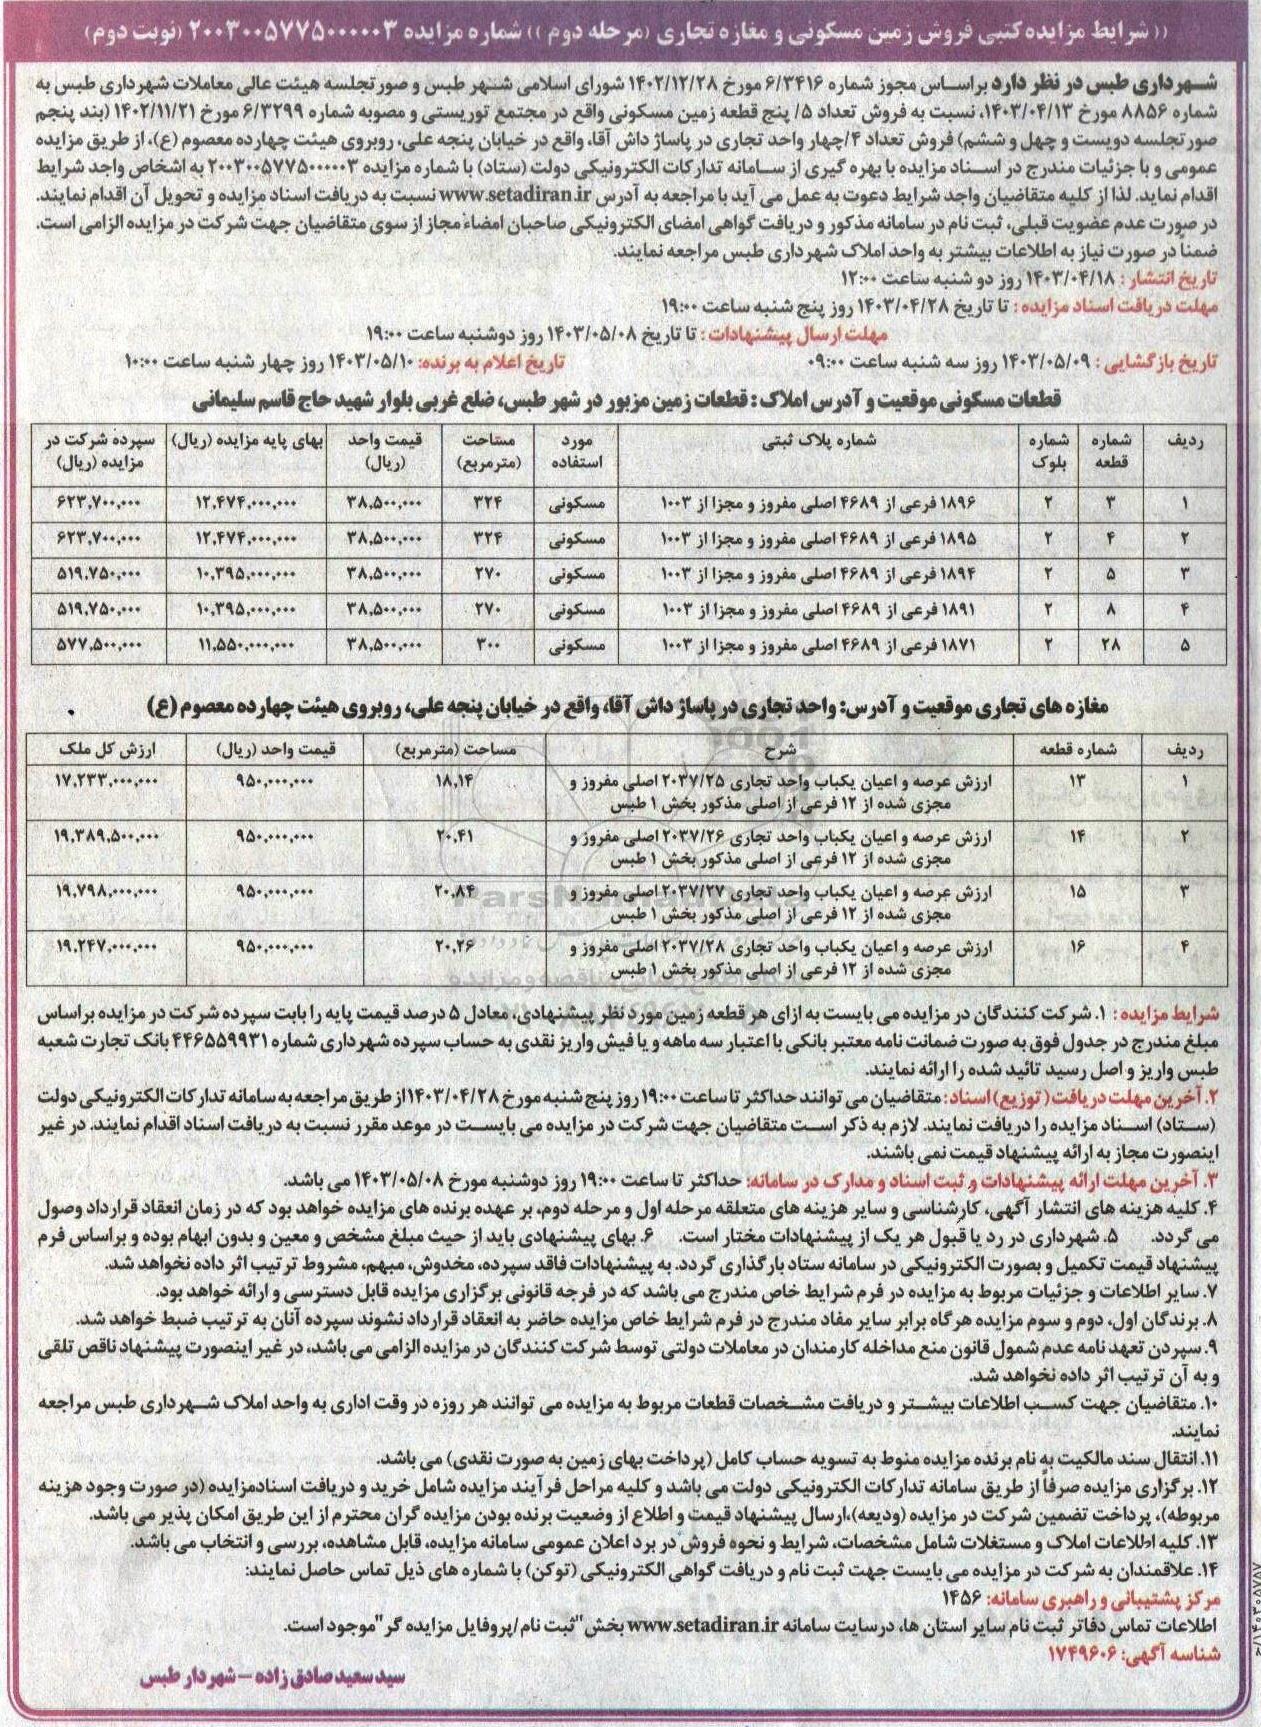 (( شرایط مزایده کتبی فروش زمین مسکونی و مغازه تجاری (مرحله دوم )) شماره مزایده ۲۰۰۳۰۰۵۷۷۵۰۰۰۰۰۳ (نوبت دوم)
شهرداری طبس در نظر دارد براساس مجوز شماره ۶/۳۴۱۶ مورخ ۱۴۰۲/۱۲/۲۸ شورای اسلامی شهر طبس و صورتجلسه هیئت عالی معاملات شهرداری طبس به
شماره ۸۸۵۶ مورخ ۱۴۰۳/۰۴/۱۳، نسبت به فروش تعداد ۵/ پنج قطعه زمین مسکونی واقع در مجتمع توریستی و مصوبه شماره ۶/۳۲۹۹ مورخ ۱۴۰۲/۱۱/۲۱ (بند پنجم
صورتجلسه دویست و چهل و ششم) فروش تعداد ۴/چهار واحد تجاری در پاساژ داش آقا، واقع در خیابان پنجه علی، روبروی هیئت چهارده معصوم (ع)، از طریق مزایده
عمومی و با جزئیات مندرج در اسناد مزایده با بهره گیری از سامانه تدارکات الکترونیکی دولت (ستاد) با شماره مزایده ۲۰۰۳۰۰۵۷۷۵۰۰۰۰۰۳ به اشخاص واجد شرایط
اقدام نماید. لذا از کلیه متقاضیان واجد شرایط دعوت به عمل می آید با مراجعه به آدرس www.setadiran.ir نسبت به دریافت اسناد مزایده و تحویل آن اقدام نمایند.
در صورت عدم عضویت قبلی، ثبت نام در سامانه مذکور و دریافت گواهی امضای الکترونیکی صاحبان امضاء مجاز از سوی متقاضیان جهت شرکت در مزایده الزامی است.
ضمناً در صورت نیاز به اطلاعات بیشتر به واحد املاک شهرداری طبس مراجعه نمایند.
تاریخ انتشار : ۱۴۰۳/۰۴/۱۸ روز دو شنبه ساعت ۱۲:۰۰
مهلت دریافت اسناد مزایده : تا تاریخ ۱۴۰۳/۰۴/۲۸ روز پنج شنبه ساعت ۱۹:۰۰
مهلت ارسال پیشنهادات : تا تاریخ ۱۴۰۳/۰۵/۰۸ روز دوشنبه ساعت ۱۹:۰۰
تاریخ بازگشایی : ۱۴۰۳/۰۵/۰۹ روز سه شنبه ساعت ۰۹:۰۰ تاریخ اعلام به برنده: ۱۴۰۳/۰۵/۱۰ روز چهار شنبه ساعت ۱۰:۰۰
قطعات مسکونی موقعیت و آدرس املاک : قطعات زمین مزبور در شهر طبس، ضلع غربی بلوار شهید حاج قاسم سلیمانی
ردیف | شماره قطعه | شماره بلوک | شماره پلاک ثبتی | مورد استفاده | مساحت (مترمربع) | قیمت واحد (ریال) | بهای پایه مزایده (ریال) | سپرده شرکت در مزایده (ریال)
۱ | ۳ | ۲ | ۱۸۹۶ فرعی از ۴۶۸۹ اصلی مفروز و مجزا از ۱۰۰۳ | مسکونی | ۳۲۴ | ۳۸,۵۰۰,۰۰۰ | ۱۲,۴۷۴,۰۰۰,۰۰۰ | ۶۲۳,۷۰۰,۰۰۰
۲ | ۴ | ۲ | ۱۸۹۵ فرعی از ۴۶۸۹ اصلی مفروز و مجزا از ۱۰۰۳ | مسکونی | ۳۲۴ | ۳۸,۵۰۰,۰۰۰ | ۱۲,۴۷۴,۰۰۰,۰۰۰ | ۶۲۳,۷۰۰,۰۰۰
۳ | ۵ | ۲ | ۱۸۹۴ فرعی از ۴۶۸۹ اصلی مفروز و مجزا از ۱۰۰۳ | مسکونی | ۲۷۰ | ۳۸,۵۰۰,۰۰۰ | ۱۰,۳۹۵,۰۰۰,۰۰۰ | ۵۱۹,۷۵۰,۰۰۰
۴ | ۸ | ۲ | ۱۸۹۱ فرعی از ۴۶۸۹ اصلی مفروز و مجزا از ۱۰۰۳ | مسکونی | ۲۷۰ | ۳۸,۵۰۰,۰۰۰ | ۱۰,۳۹۵,۰۰۰,۰۰۰ | ۵۱۹,۷۵۰,۰۰۰
۵ | ۲۸ | ۲ | ۱۸۷۱ فرعی از ۴۶۸۹ اصلی مفروز و مجزا از ۱۰۰۳ | مسکونی | ۳۰۰ | ۳۸,۵۰۰,۰۰۰ | ۱۱,۵۵۰,۰۰۰,۰۰۰ | ۵۷۷,۵۰۰,۰۰۰
مغازه های تجاری موقعیت و آدرس: واحد تجاری در پاساژ داش آقا، واقع در خیابان پنجه علی، روبروی هیئت چهارده معصوم (ع)
ردیف | شماره قطعه | شرح | مساحت (مترمربع) | قیمت واحد (ریال) | ارزش کل ملک
۱ | ۱۳ | ارزش عرصه و اعیان یکباب واحد تجاری ۲۰۳۷/۲۵ اصلی مفروز و مجزی شده از ۱۲ فرعی از اصلی مذکور بخش ۱ طبس | ۱۸,۱۴ | ۹۵۰,۰۰۰,۰۰۰ | ۱۷,۲۳۳,۰۰۰,۰۰۰
۲ | ۱۴ | ارزش عرصه و اعیان یکباب واحد تجاری ۲۰۳۷/۲۶ اصلی مفروز و مجزی شده از ۱۲ فرعی از اصلی مذکور بخش ۱ طبس | ۲۰,۴۱ | ۹۵۰,۰۰۰,۰۰۰ | ۱۹,۳۸۹,۵۰۰,۰۰۰
۳ | ۱۵ | ارزش عرصه و اعیان یکباب واحد تجاری ۲۰۳۷/۲۷ اصلی مفروز و مجزی شده از ۱۲ فرعی از اصلی مذکور بخش ۱ طبس | ۲۰,۸۴ | ۹۵۰,۰۰۰,۰۰۰ | ۱۹,۷۹۸,۰۰۰,۰۰۰
۴ | ۱۶ | ارزش عرصه و اعیان یکباب واحد تجاری ۲۰۳۷/۲۸ اصلی مفروز و مجزی شده از ۱۲ فرعی از اصلی مذکور بخش ۱ طبس | ۲۰,۲۶ | ۹۵۰,۰۰۰,۰۰۰ | ۱۹,۲۴۷,۰۰۰,۰۰۰
شرایط مزایده : ۱. شرکت کنندگان در مزایده می بایست به ازای هر قطعه زمین مورد نظر پیشنهادی، معادل ۵ درصد قیمت پایه را بابت سپرده شرکت در مزایده براساس
مبلغ مندرج در جدول فوق به صورت ضمانت نامه معتبر بانکی با اعتبار سه ماهه و یا فیش واریز نقدی به حساب سپرده شهرداری شماره ۴۴۶۵۵۹۹۳۱ بانک تجارت شعبه
طبس واریز و اصل رسید تائید شده را ارائه نمایند.
۲. آخرین مهلت دریافت ( توزیع) اسناد: متقاضیان می توانند حداکثر تا ساعت ۱۹:۰۰ روز پنج شنبه مورخ ۱۴۰۳/۰۴/۲۸ از طریق مراجعه به سامانه تدارکات الکترونیکی دولت
(ستاد) اسناد مزایده را دریافت نمایند. لازم به ذکر است متقاضیان جهت شرکت در مزایده می بایست در موعد مقرر نسبت به دریافت اسناد اقدام نمایند. در غیر
اینصورت مجاز به ارائه پیشنهاد قیمت نمی باشند.
۳. آخرین مهلت ارائه پیشنهادات و ثبت اسناد و مدارک در سامانه: حداکثر تا ساعت ۱۹:۰۰ روز دوشنبه مورخ ۱۴۰۳/۰۵/۰۸ می باشد.
۴. کلیه هزینه های انتشار آگهی، کارشناسی و سایر هزینه های متعلقه مرحله اول و مرحله دوم، بر عهده برنده های مزایده خواهد بود که در زمان انعقاد قرارداد وصول
می گردد. ۵. شهرداری در رد یا قبول هر یک از پیشنهادات مختار است. ۶. بهای پیشنهادی باید از حیث مبلغ مشخص و معین و بدون ابهام بوده و براساس فرم
پیشنهاد قیمت تکمیل و بصورت الکترونیکی در سامانه ستاد بارگذاری گردد. به پیشنهادات فاقد سپرده، مخدوش، مبهم، مشروط ترتیب اثر داده نخواهد شد.
۷. سایر اطلاعات و جزئیات مربوط به مزایده در فرم شرایط خاص مندرج می باشد که در فرجه قانونی برگزاری مزایده قابل دسترسی و ارائه خواهد بود.
۸. برندگان اول، دوم و سوم مزایده هرگاه برابر سایر مفاد مندرج در فرم شرایط خاص مزایده حاضر به انعقاد قرارداد نشوند سپرده آنان به ترتیب ضبط خواهد شد.
۹. سپردن تعهد نامه عدم شمول قانون منع مداخله کارمندان در معاملات دولتی توسط شرکت کنندگان در مزایده الزامی می باشد، در غیر اینصورت پیشنهاد ناقص تلقی
و به آن ترتیب اثر داده نخواهد شد.
۱۰. متقاضیان جهت کسب اطلاعات بیشتر و دریافت مشخصات قطعات مربوط به مزایده می توانند هر روزه در وقت اداری به واحد املاک شهرداری طبس مراجعه
نمایند.
۱۱. انتقال سند مالکیت به نام برنده مزایده منوط به تسویه حساب کامل (پرداخت بهای زمین به صورت نقدی) می باشد.
۱۲. برگزاری مزایده صرفاً از طریق سامانه تدارکات الکترونیکی دولت می باشد و کلیه مراحل فرآیند مزایده شامل خرید و دریافت اسناد مزایده (در صورت وجود هزینه
مربوطه)، پرداخت تضمین شرکت در مزایده (ودیعه)، ارسال پیشنهاد قیمت و اطلاع از وضعیت برنده بودن مزایده گران محترم از این طریق امکان پذیر می باشد.
۱۳. کلیه اطلاعات املاک و مستغلات شامل مشخصات، شرایط و نحوه فروش در برد اعلان عمومی سامانه مزایده، قابل مشاهده، بررسی و انتخاب می باشد.
۱۴. علاقمندان به شرکت در مزایده می بایست جهت ثبت نام و دریافت گواهی الکترونیکی (توکن) با شماره های ذیل تماس حاصل نمایند:
مرکز پشتیبانی و راهبری سامانه: ۱۴۵۶
اطلاعات تماس دفاتر ثبت نام سایر استان ها، درسایت سامانه www.setadiran.ir بخش "ثبت نام/پروفایل مزایده گر" موجود است.
شناسه آگهی: ۱۷۴۹۶۰۶
سید سعید صادق زاده – شهردار طبس
۱۴۰۳۰۵۷۵۷/ح